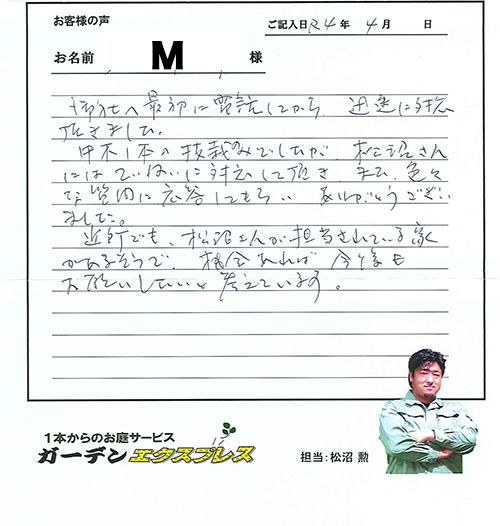 お客様の声
ご記入日 R4年 4月 日
お名前 M 様
御社へ最初に電話してから、迅速に対応
頂きました。
中木1本の抜栽のみでしたが、松沼さん
にはていねいに対応して頂き、また、色々
な質問に応答してもらい、ありがとうござい
ました。
近所でも、松沼さんが担当されている家
があるそうで、機会あれば今後も
お願いしたいと考えています。
1本からのお庭サービス
ガーデンエクスプレス
担当:松沼 勲